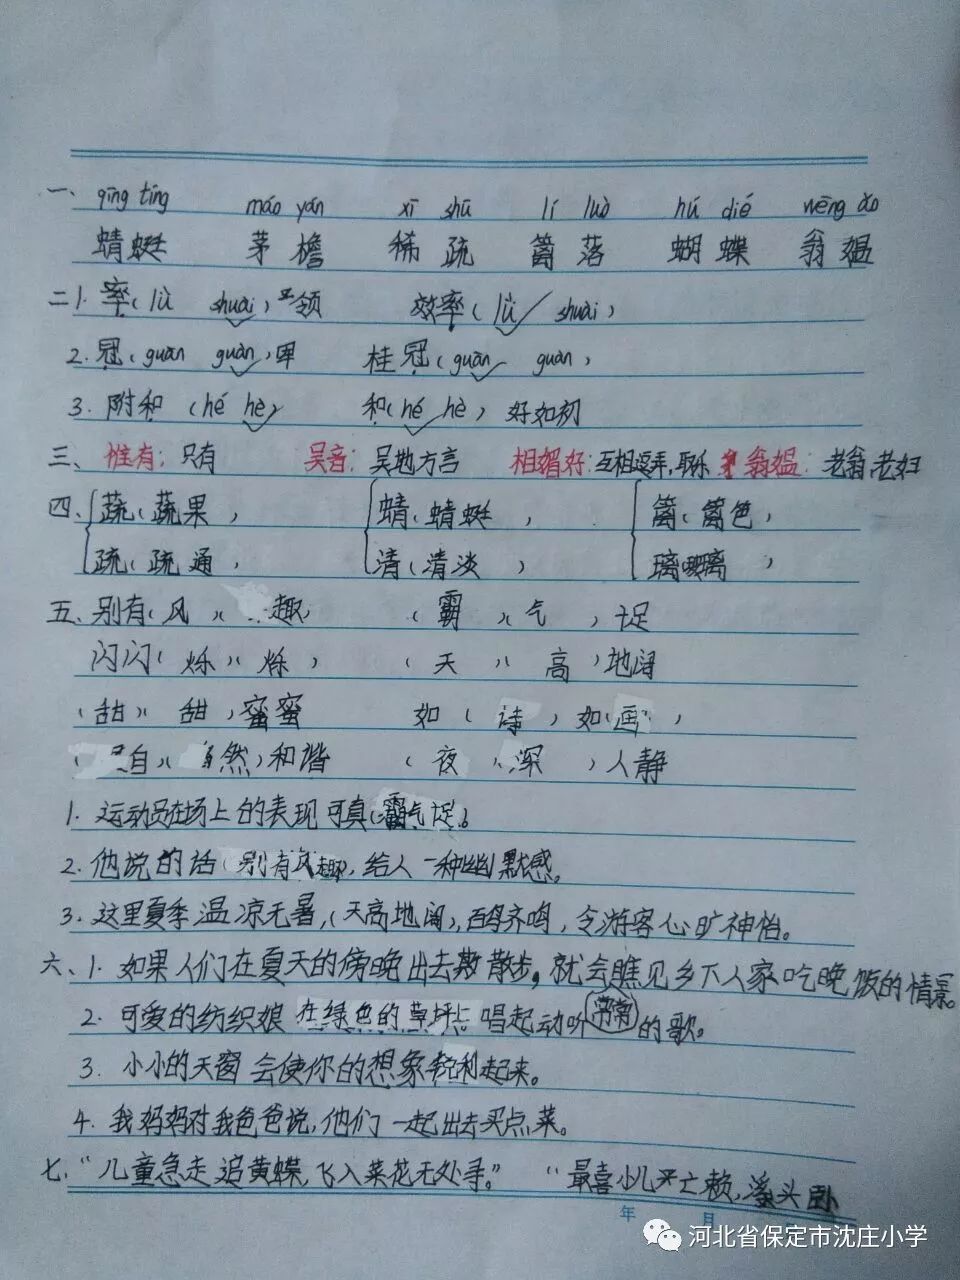 一、 qīng tíng  máo yán  xī shū  lí luò  hú dié  wēng ǎo
蜻蜓 茅檐 稀疏 篱落 蝴蝶 翁媪
二1. 率(lǜ shuài)领 效率(lǜ shuài)
2. 冠(guān guàn)军 桂冠(guān guàn)
3. 附和(hé hè) 和(hé hè)好如初
三、惟有:只有 吴音:吴地方言 相媚好:互相逗弄,取乐 翁媪:老翁,老妇
四、蔬(蔬果) 蜻(蜻蜓) 篱(篱色)
疏(疏通) 清(清淡) 璃
五、别有(风)(趣) (霸)(气)十足
闪闪(烁)(烁) (天)(高)地阔
(甜)(甜)蜜蜜 如(诗)如(画)
自)(然)和谐 (夜)(深)人静
1. 运动员在场上的表现可真(霸气十足。
2. 他说的话(别有风趣),给人一种幽默感。
3. 这里夏季温凉无暑,(天高地阔),百鸟齐鸣,令游客心旷神怡。
六、1. 如果人们在夏天的傍晚出去散步,就会瞧见乡下人家吃晚饭的情景。
2. 可爱的纺织娘在绿色的草坪上唱起动听常常的歌。
3. 小小的天窗会使你的想象锐利起来。
4. 我妈妈对我爸爸说,他们一起出去买点菜。
七、“儿童急走追黄蝶,飞入菜花无处寻。” “最喜小儿亡赖,溪头卧
年 月
河北省保定市沈庄小学